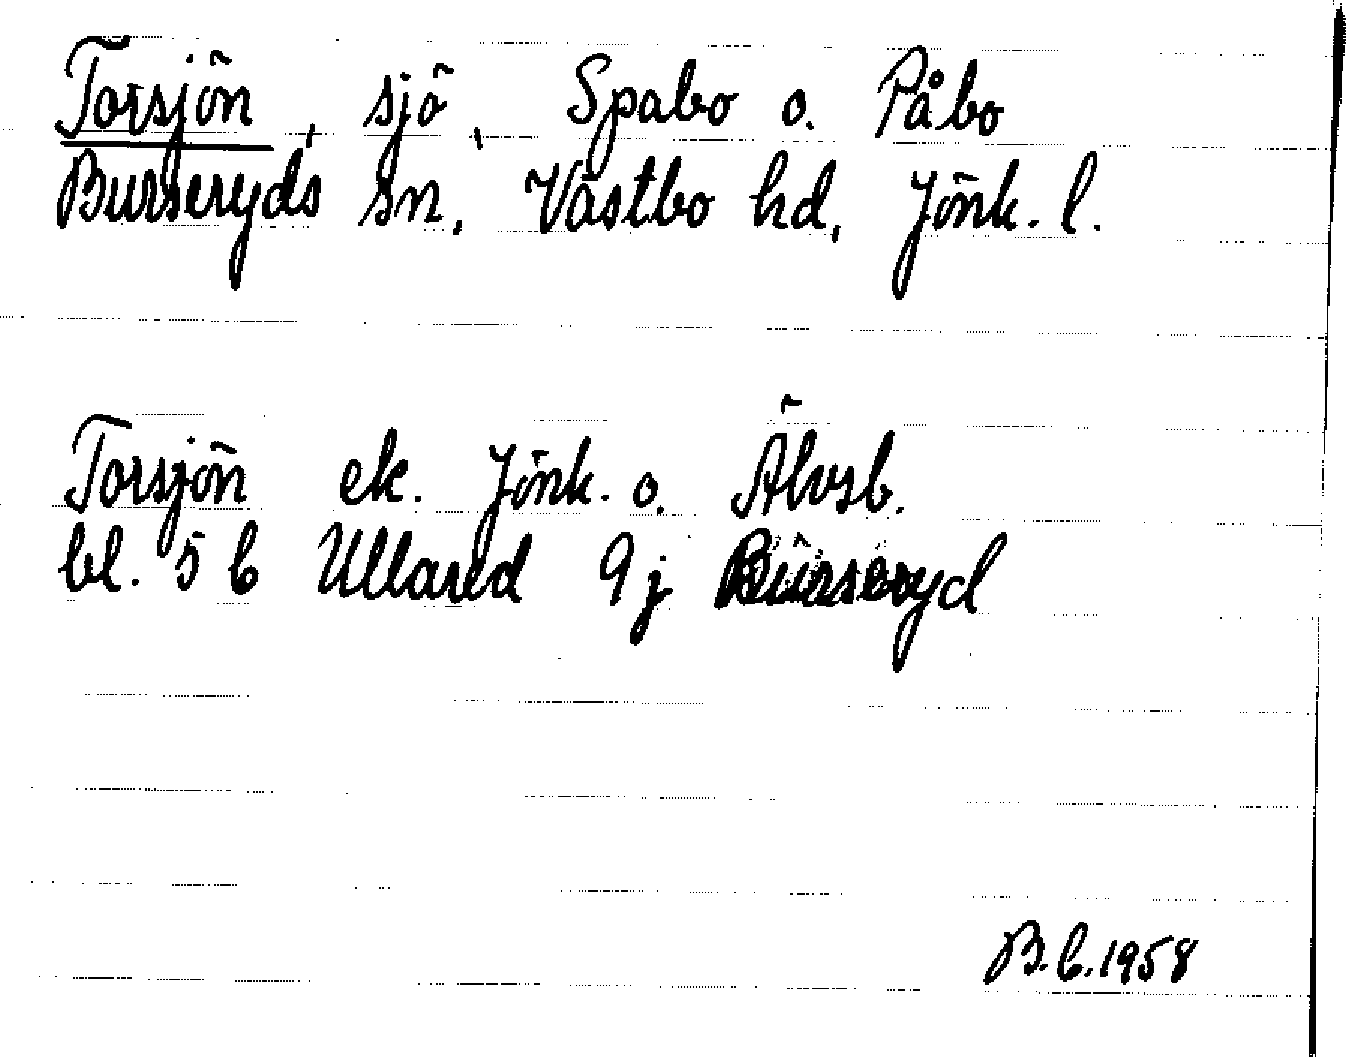 Torsjön, sjö, Spabo o. Påbo
Burseryds sn, Västbo hd, Jönk. l.
Torsjön ek. Jönk. o. Älvsb.
bl. 5 b Ullared 9 j Burseryd
B.b.1958